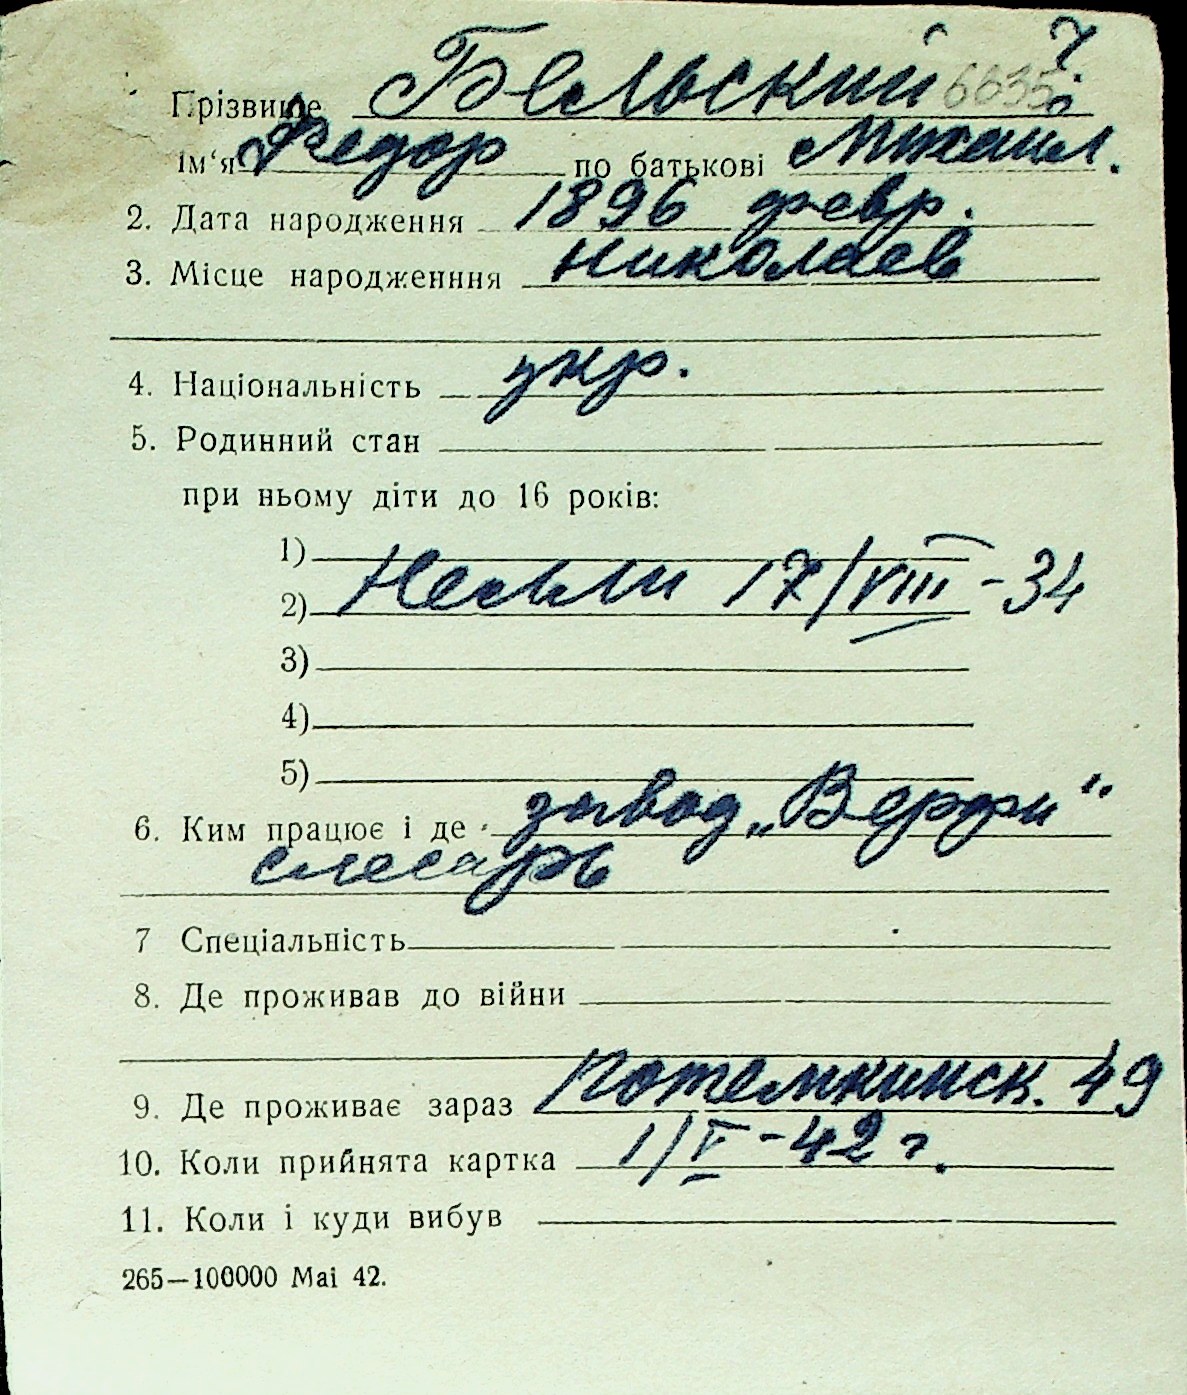 Прізвище Бельский 6635 7.
ім‘я Федор по батькові Михаил.
2. Дата народження 1896 февр.
3. Місце народженння Николаев
4. Національність укр.
5. Родинний стан
при ньому діти до 16 років:
1)
2) Нелли 17/VIII-34
3)
4)
5)
6. Ким працює і де завод „Верфи“
слесарь
7 Спеціальність
8. Де проживав до війни
9. Де проживає зараз Потемкинск. 49
10. Коли прийнята картка 1/V-42 г.
11. Коли і куди вибув
265—100000 Mai 42.